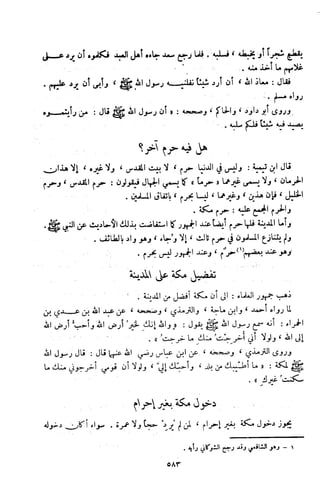 يقطع شجراً أو يخبطه ، فسلبه . فلما رجع سعد جاءه أهل العبد فكلموه أن يرد عـــلى
غلامهم ما أخذ منه .
فقال : معاذ الله ، أن أرد شيئاً نفلنيـــه رسول الله ﷺ ، وأبى أن يرد عليهم .
رواه مسلم .
وروى أبو داود ، والحاكم ، وصححه : « أن رسول الله ﷺ قال : من رأيتمـــوه
يصيد فيه شيئاً فلكم سلبه .
هل فيه حرم آخر؟
قال ابن تيمية : وليس في الدنيا حرم ، لا بيت المقدس ، ولا غيره ، إلا هذان
الحرمان ، ولا يسمى غيرهما « حرماً » كما يسمي الجهال فيقولون : حرم المقدس ، وحرم
الخليل ، فإن هذين ، وغيرهما ، ليسا بحرم ، باتفاق المسلمين .
والحرم المجمع عليه : حرم مكة .
وأما المدينة فلها حرم أيضاً عند الجمهور كما استفاضت بذلك الأحاديث عن النبي ﷺ .
ولم يتنازع المسلمون في حرم ثالث ، إلا وجاء ، وهو واد بالطائف .
وهو عند بعضهم(١) حرم ، وعند الجمهور ليس بحرم .
تفضيل مكة على المدينة
ذهب جمهور العلماء : الى أن مكة أفضل من المدينة .
لما رواه أحمد ، وابن ماجة ، والترمذي ، وصححه ، عن عبد الله بن عـــدي بن
الحمراء : أنه سمع رسول الله ﷺ يقول : « والله إنك لخير أرض الله وأحب أرض الله
إلى الله ، ولولا أني أخرجت منك ما خرجت » .
وروى الترمذي ، وصححه ، عن ابن عباس رضي الله عنهما قال : قال رسول الله
ﷺ لمكة : « ما أطيبك من بلد ، وأحبك إلي ، ولولا أن قومي أخرجوني منك ما
سكنت غيرك » .
دخول مكة بغير إحرام
يجوز دخول مكة بغير إحرام ، لمن لم يرد حجاً ولا عمرة . سواء أكان دخوله
١ - وهو الشافعي وقد رجح الشوكاني رأيه .
٥٨٣